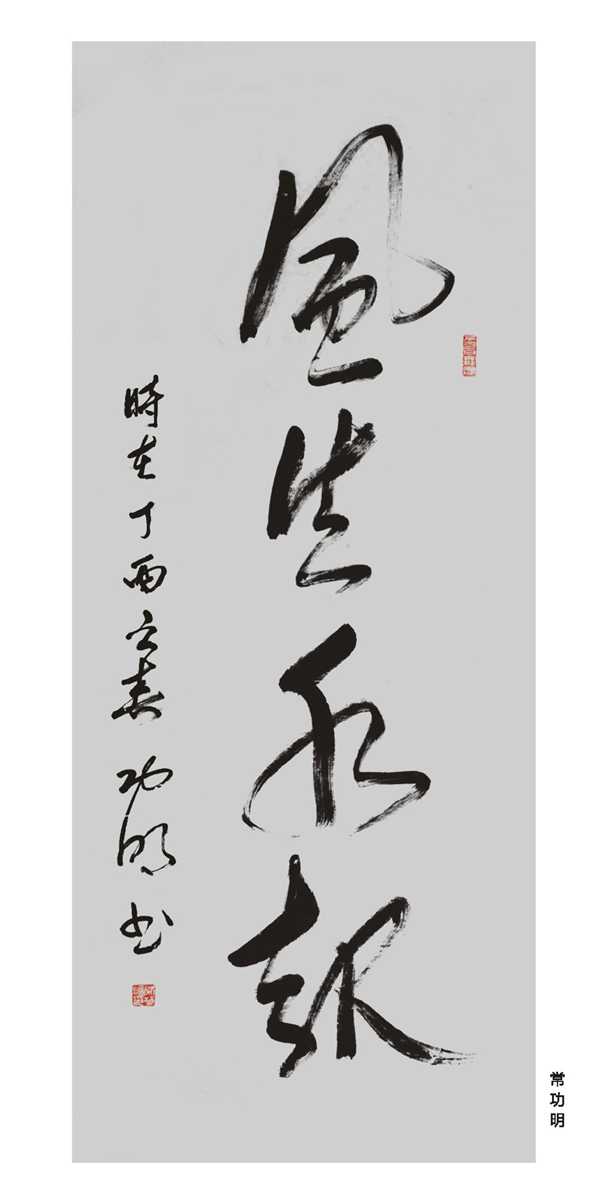 風生水起
時在丁酉之春 功明书
常功明